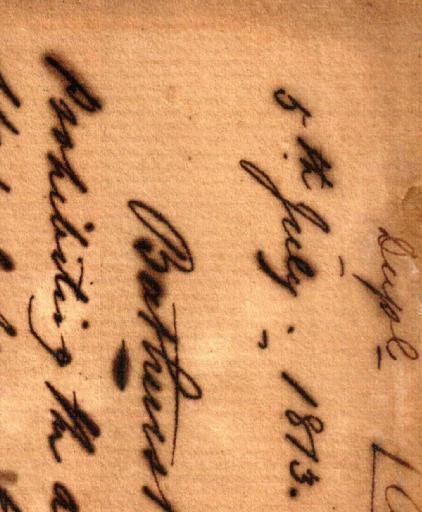 Dupl
5th July 1873.
Bathurst
Prohibiting the